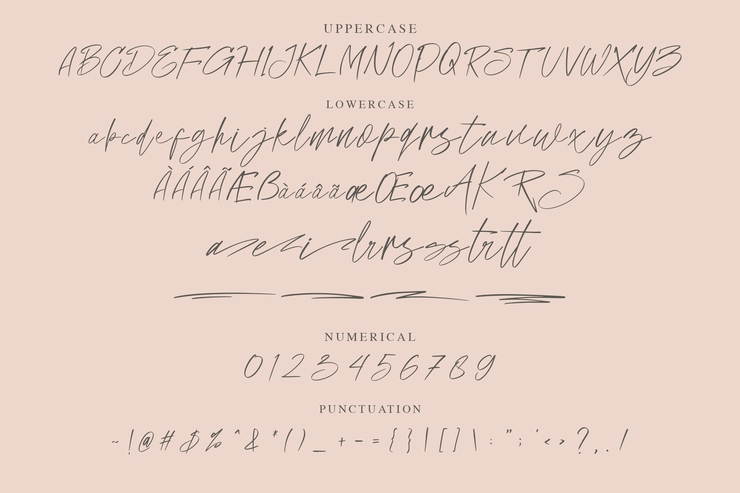 UPPERCASE
ABCDEFGHIJKLMNOPQRSTUVWXYZ
LOWERCASE
abcdefghijklmnopqrstuvwxyz
ÀÁÂÃÆBàáâãäæŒœAKRS
NUMERICAL
0123456789
PUNCTUATION
~!@#$%^&*()_+-={}|[]\:";'<>?,./